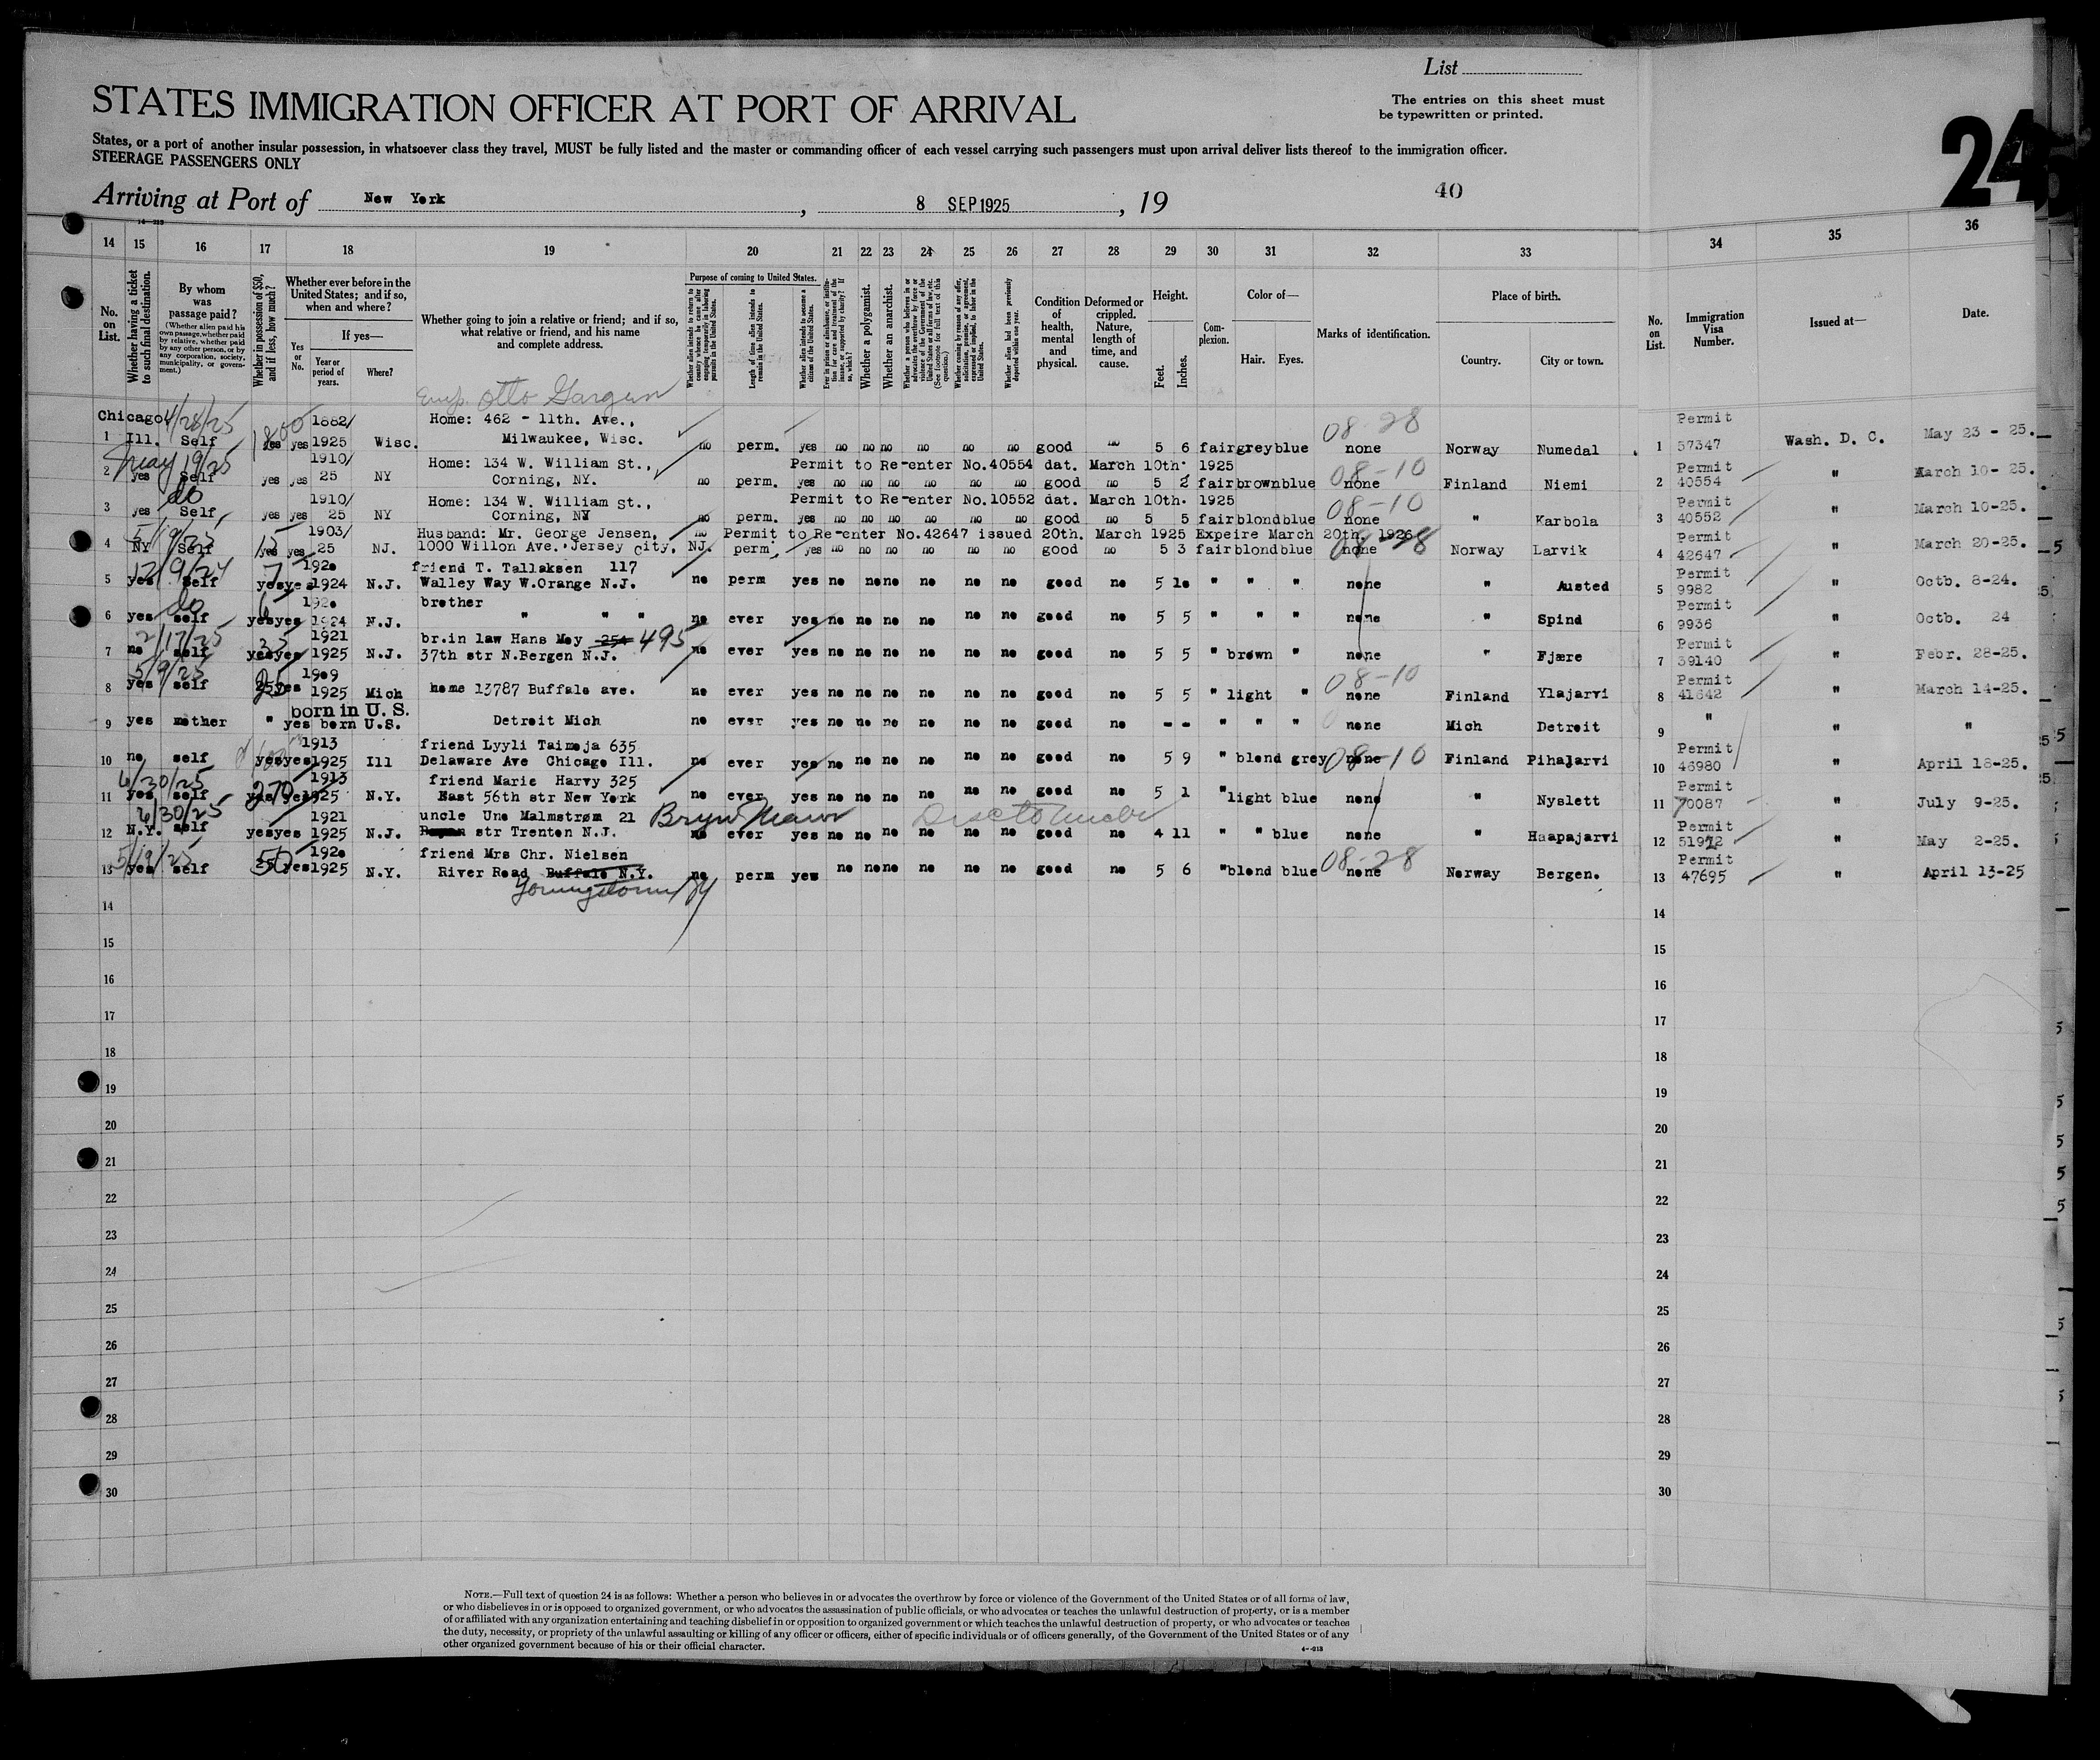 List
STATES IMMIGRATION OFFICER AT PORT OF ARRIVAL
The entries on this sheet must
be typewritten or printed.
24
States, or a port of another insular possession, in whatsoever class they travel, MUST be fully listed and the master or commanding officer of each vessel carrying such passengers must upon arrival deliver lists thereof to the immigration officer.
STEERAGE PASSENGERS ONLY
Arriving at Port of New York, 8 SEP 1925, 19
40
14 15 16 17 18 19 20 21 22 23 24 25 26 27 28 29 30 31 32 33 34 35 36
No. on List.
Whether having a ticket to such final destination.
By whom was passage paid?
(Whether alien paid his own passage, whether paid by relative, whether paid by any other person, or by any corporation, society, municipality, or government.)
Whether in possession of $50, and if less, how much?
Whether ever before in the United States; and if so, when and where?
Yes or No.
If yes—
Year or period of years.
Where?
Whether going to join a relative or friend; and if so, what relative or friend, and his name and complete address.
Purpose of coming to United States.
Whether alien intends to return to country whence he came after engaging temporarily in laboring pursuits in the United States.
Length of time alien intends to remain in the United States.
Whether alien intends to become a citizen of the United States.
Ever in prison or almshouse, or institution for care and treatment of the insane, or supported by charity? If so, which?
Whether a polygamist.
Whether an anarchist.
Whether a person who believes in or advocates the overthrow by force or violence of the Government of the United States or all forms of law, etc. (See footnote for full text of this question.)
Whether coming by reason of any offer, solicitation, promise, or agreement, expressed or implied, to labor in the United States.
Whether alien had been previously deported within one year.
Condition of health, mental and physical.
Deformed or crippled. Nature, length of time, and cause.
Height.
Feet. Inches.
Complexion.
Color of—
Hair. Eyes.
Marks of identification.
Place of birth.
Country. City or town.
No. on List.
Immigration Visa Number.
Issued at—
Date.
Otto
Chicago 4/28/25 1882/ Home: 462 - 11th. Ave., 08-28 Permit
1 Ill. Self 1800 yes yes 1925 Wisc. Milwaukee, Wisc. no perm. yes no no no no no no good no 5 6 fair grey blue none Norway Numedal 1 57347 Wash. D. C. May 23 - 25.
May 19/25 1910/ Home: 134 W. William St., Permit to Re-enter No.40554 dat. March 10th. 1925 08-10 Permit
2 yes Self yes yes 25 NY Corning, NY. no perm. yes no no no no no no good no 5 2 fair brown blue none Finland Niemi 2 40554 " March 10- 25.
do 1910/ Home: 134 W. William St., Permit to Re-enter No.10552 dat. March 10th. 1925 08-10 Permit
3 yes Self yes yes 25 NY Corning, NY no perm. yes no no no no no no good no 5 5 fair blond blue none " Karbola 3 40552 " March 10-25.
5/19/25 1903/ Husband: Mr. George Jensen, no Permit to Re-enter No.42647 issued 20th. March 1925 Expeire March 20th. 1926 Permit
4 NY Self 15 yes yes 25 NJ. 1000 Willon Ave. Jersey City, NJ. perm. yes no no no no no no good no 5 3 fair blond blue none 08-28 Norway Larvik 4 42647 " March 20-25.
12/9/24 7 192o friend T. Tallaksen 117 Permit
5 yes self yes yes 1924 N.J. Walley Way W.Orange N.J. no perm yes no no no no no no good no 5 1o " " " none " Austed 5 9982 " Octb. 8-24.
do 6 192o brother Permit
6 yes self yes yes 1924 N.J. " " " no ever yes no no no no no no good no 5 5 " " " none " Spind 6 9936 " Octb. 24
2/17/25 35 1921 br.in law Hans Moy 254 495 Permit
7 no self yes yes 1925 N.J. 37th str N.Bergen N.J. no ever yes no no no no no no good no 5 5 " brown " none " Fjære 7 39140 " Febr. 28-25.
5/9/25 19o9 08-10 Permit
8 yes self 25 yes 1925 Mich home 13787 Buffalo ave. no ever yes no no no no no no good no 5 5 " light " none Finland Ylajarvi 8 41642 " March 14-25.
born in U. S.
9 yes mother " yes born U.S. Detroit Mich no ever yes no no no no no no good no - - " " " none Mich Detroit 9 " " "
1913 friend Lyyli Taimoja 635 Permit
10 no self yes yes 1925 Ill Delaware Ave Chicago Ill. no ever yes no no no no no no good no 5 9 " blond grey none 08-10 Finland Pihajarvi 10 46980 " April 18-25.
6/30/25 1913 friend Marie Harvy 325
11 yes self 270 yes yes 1925 N.Y. East 56th str New York no ever yes no no no no no no good no 5 1 " light blue none " Nyslett 11 70087 " July 9-25.
6/30/25 1921 uncle Uno Malmstrøm 21 Bryn Mawr Permit
12 N.Y. self yes yes 1925 N.J. str Trenton N.J. no ever yes no no no no no no good no 4 11 " " blue none " Haapajarvi 12 51972 " May 2-25.
5/19/25 192o friend Mrs Chr. Nielsen 08-28 Permit
13 yes self 50 yes 1925 N.Y. River Road Buffalo N.Y. no perm yes no no no no no no good no 5 6 " blond blue none Norway Bergen. 13 47695 " April 13-25
Youngstown NY
14 14
15 15
16 16
17 17
18 18
19 19
20 20
21 21
22 22
23 23
24 24
25 25
26 26
27 27
28 28
29 29
30 30
NOTE.—Full text of question 24 is as follows: Whether a person who believes in or advocates the overthrow by force or violence of the Government of the United States or of all forms of law,
or who disbelieves in or is opposed to organized government, or who advocates the assassination of public officials, or who advocates or teaches the unlawful destruction of property, or is a member
of or affiliated with any organization entertaining and teaching disbelief in or opposition to organized government or which teaches the unlawful destruction of property, or who advocates or teaches
the duty, necessity, or propriety of the unlawful assaulting or killing of any officer or officers, either of specific individuals or of officers generally, of the Government of the United States or of any
other organized government because of his or their official character.